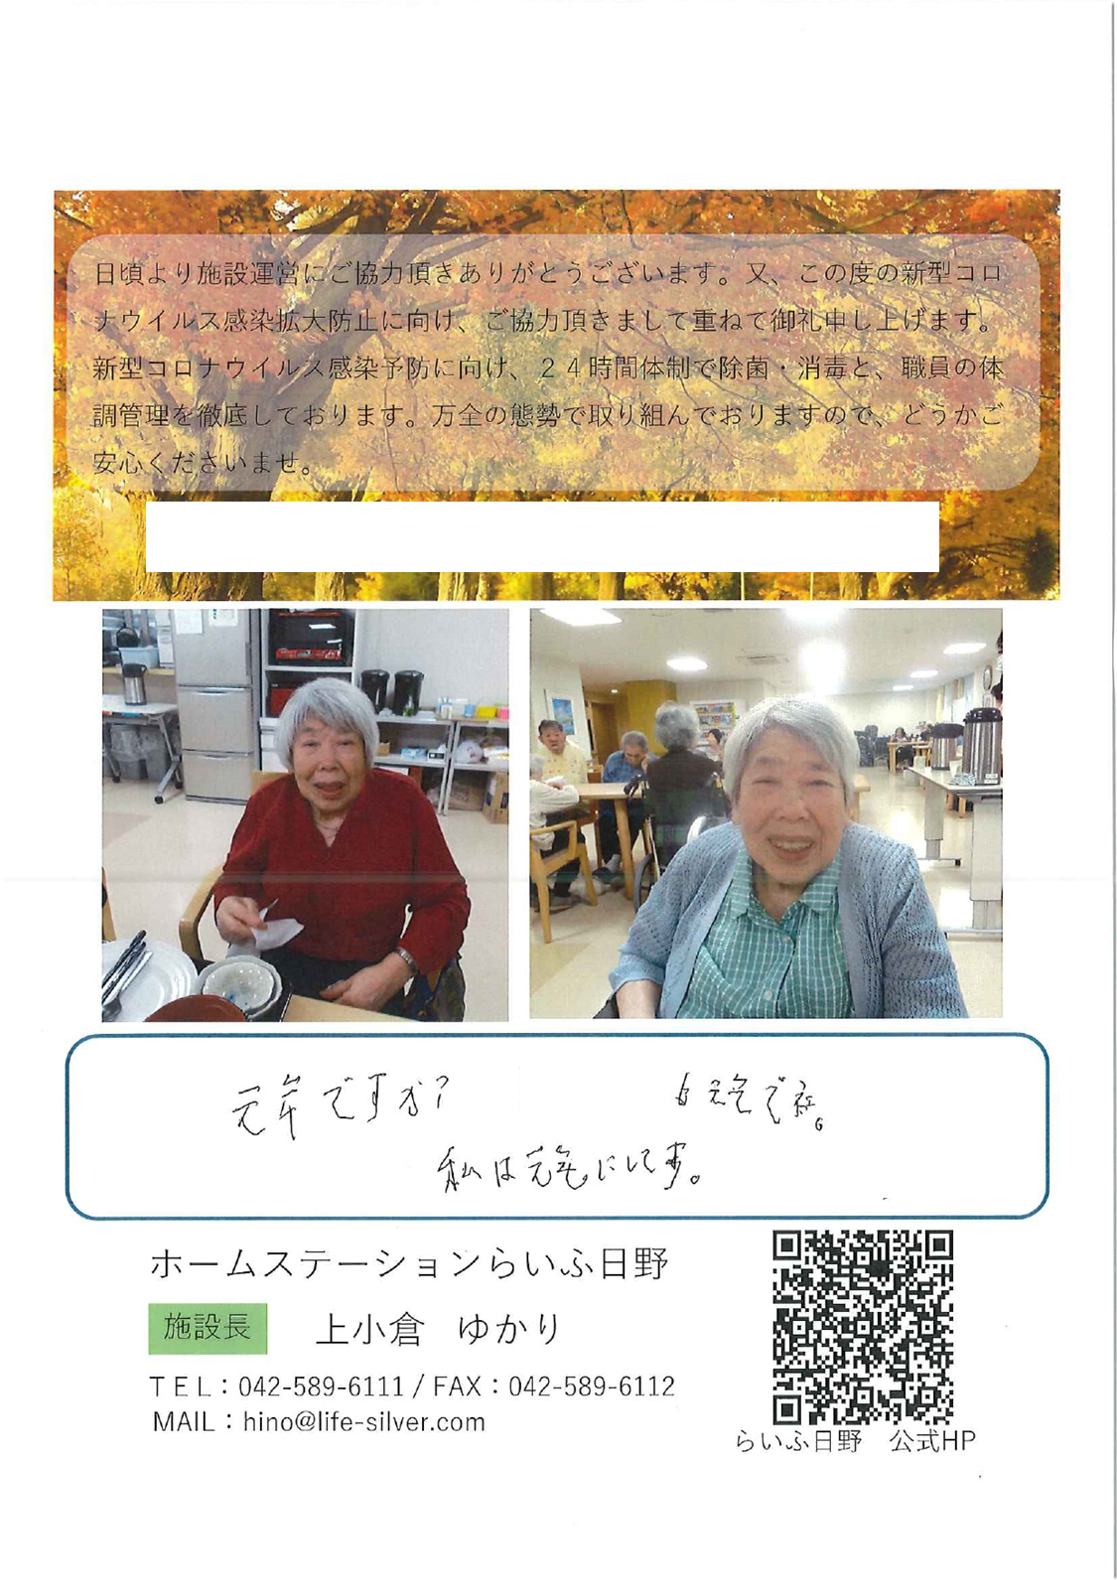 日頃より施設運営にご協力頂きありがとうございます。又、この度の新型コロ
ナウイルス感染拡大防止に向け、ご協力頂きまして重ねて御礼申し上げます。
新型コロナウイルス感染予防に向け、２４時間体制で除菌・消毒と、職員の体
調管理を徹底しております。万全の態勢で取り組んでおりますので、どうかご
安心くださいませ。
ですか？
私は元気にしてます。
ホームステーションらいふ日野
施設長　上小倉　ゆかり
ＴＥＬ：042-589-6111 / FAX：042-589-6112
MAIL：hino@life-silver.com
らいふ日野　公式HP